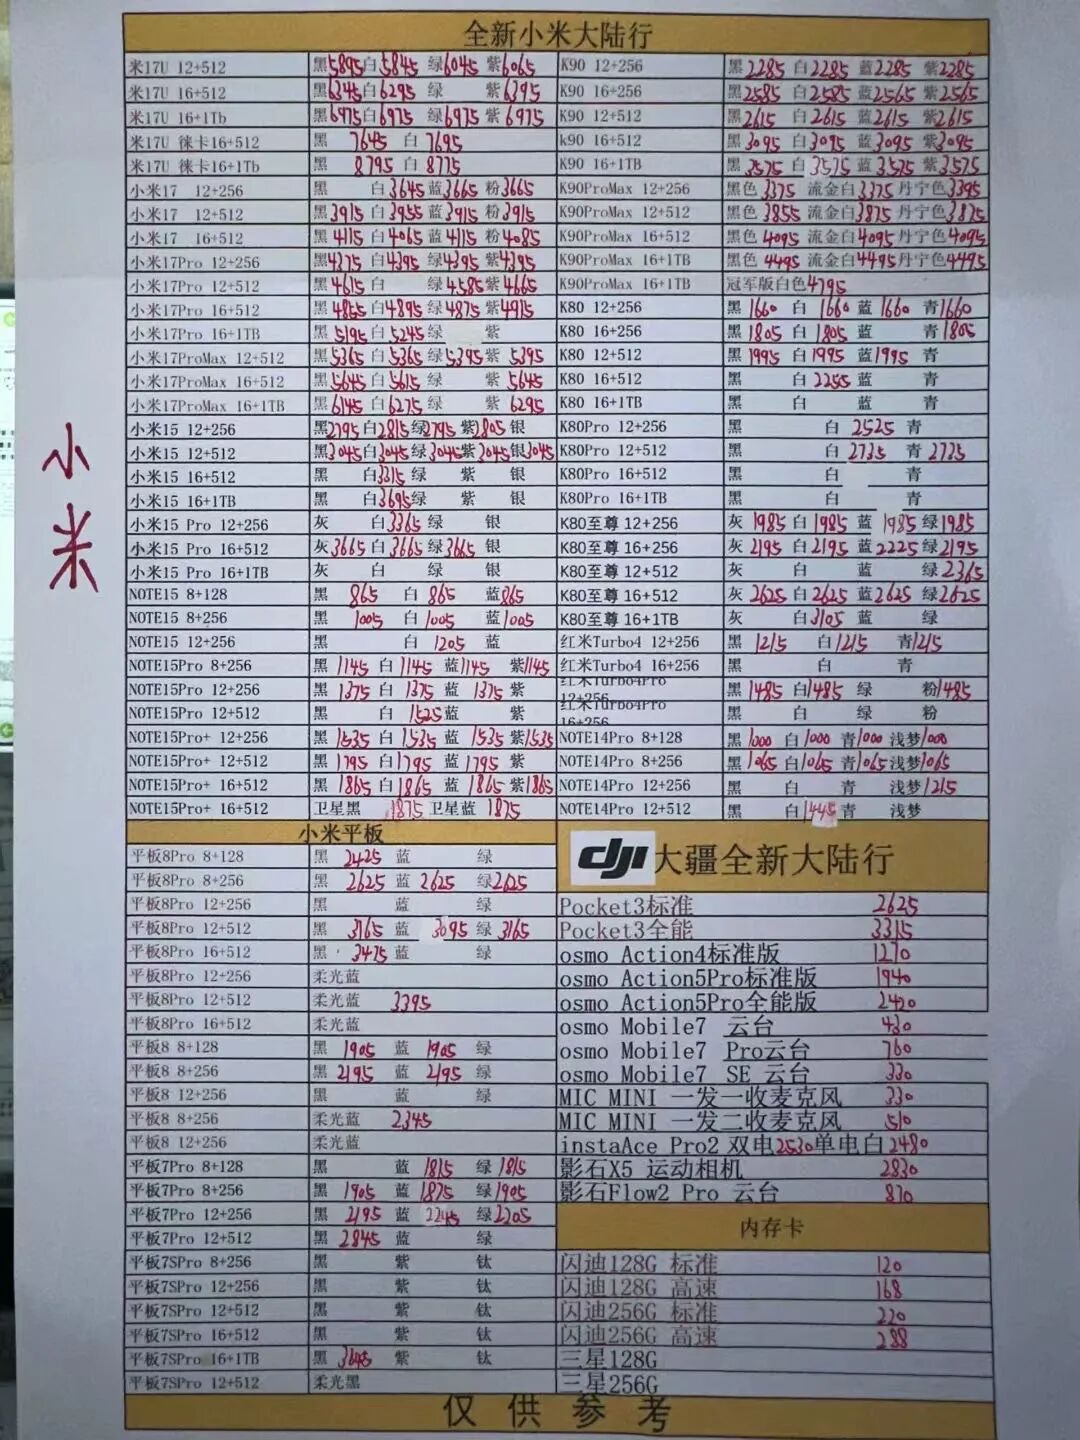 全新小米大陆行
米17U 12+512 黑5895 白5845 绿6045 紫6065
米17U 16+512 黑6345 白6295 绿 紫6395
米17U 16+1Tb 黑6975 白6975 绿6975 紫6975
米17U 徕卡16+512 黑 7645 白 7695
米17U 徕卡16+1Tb 黑 8795 白 8775
小米17 12+256 黑 白3645 蓝3665 粉3665
小米17 12+512 黑3915 白3955 蓝3915 粉3915
小米17 16+512 黑4115 白4065 蓝4115 粉4085
小米17Pro 12+256 黑4375 白4395 绿4395 紫4395
小米17Pro 12+512 黑4615 白 绿4585 紫4665
小米17Pro 16+512 黑4855 白4895 绿4875 紫4915
小米17Pro 16+1TB 黑5195 白5245 绿 紫
小米17ProMax 12+512 黑5365 白5365 绿5395 紫5395
小米17ProMax 16+512 黑5645 白5615 绿 紫5645
小米17ProMax 16+1TB 黑6145 白6275 绿 紫6295
小米15 12+256 黑2795 白2815 绿2795 紫2805 银
小米15 12+512 黑3045 白3045 绿3045 紫3045 银3045
小米15 16+512 黑 白3315 绿 紫 银
小米15 16+1TB 黑 白3695 绿 紫 银
小米15 Pro 12+256 灰 白3365 绿 银
小米15 Pro 16+512 灰3665 白3665 绿3665 银
小米15 Pro 16+1TB 灰 白 绿 银
NOTE15 8+128 黑 865 白 865 蓝865
NOTE15 8+256 黑 1005 白 1005 蓝1005
NOTE15 12+256 黑 白 1205 蓝
NOTE15Pro 8+256 黑 1145 白 1145 蓝1145 紫1145
NOTE15Pro 12+256 黑 1375 白 1375 蓝 1375 紫
NOTE15Pro 12+512 黑 白 1525 蓝 紫
NOTE15Pro+ 12+256 黑 1535 白 1535 蓝 1535 紫1535
NOTE15Pro+ 12+512 黑 1795 白1795 蓝 1795 紫
NOTE15Pro+ 16+512 黑 1865 白1865 蓝 1865 紫1865
NOTE15Pro+ 16+512 卫星黑 1875 卫星蓝 1875
K90 12+256 黑2285 白2285 蓝2285 紫2285
K90 16+256 黑2585 白2585 蓝2565 紫2565
K90 12+512 黑2615 白2615 蓝2615 紫2615
k90 16+512 黑3095 白3095 蓝3095 紫3095
K90 16+1TB 黑3575 白3575 蓝3575 紫3575
K90ProMax 12+256 黑色3375 流金白3375 丹宁色3395
K90ProMax 12+512 黑色3855 流金白3875 丹宁色3875
K90ProMax 16+512 黑色4095 流金白4095 丹宁色4095
K90ProMax 16+1TB 黑色4495 流金白4495 丹宁色4495
K90ProMax 16+1TB 冠军版白色4795
K80 12+256 黑1660 白1660 蓝1660 青1660
K80 16+256 黑1805 白1805 蓝 青1805
K80 12+512 黑1995 白1995 蓝1995 青
K80 16+512 黑 白2255 蓝 青
K80 16+1TB 黑 白 蓝 青
K80Pro 12+256 黑 白 2525 青
K80Pro 12+512 黑 白 2735 青 2725
K80Pro 16+512 黑 白 青
K80Pro 16+1TB 黑 白 青
K80至尊 12+256 灰 1985 白 1985 蓝 1985 绿1985
K80至尊 16+256 灰 2195 白 2195 蓝 2225 绿2195
K80至尊 12+512 灰 白 蓝 绿2365
K80至尊 16+512 灰 2625 白 2625 蓝2625 绿2625
K80至尊 16+1TB 灰 白3105 蓝 绿
红米Turbo4 12+256 黑 1215 白1215 青1215
红米Turbo4 16+256 黑 白 青
红米Turbo4Pro 12+256 黑1485 白1485 绿 粉1485
红米Turbo4Pro 16+256 黑 白 绿 粉
NOTE14Pro 8+128 黑1000 白1000 青1000 浅梦1000
NOTE14Pro 8+256 黑1065 白1065 青1065 浅梦1065
NOTE14Pro 12+256 黑 白 青 浅梦1215
NOTE14Pro 12+512 黑 白1445 青 浅梦
小米
小米平板
平板8Pro 8+128 黑 2425 蓝 绿
平板8Pro 8+256 黑 2625 蓝 2625 绿2625
平板8Pro 12+256 黑 蓝 绿
平板8Pro 12+512 黑 3165 蓝 3095 绿 3165
平板8Pro 16+512 黑 3475 蓝 绿
平板8Pro 12+256 柔光蓝
平板8Pro 12+512 柔光蓝 3395
平板8Pro 16+512 柔光蓝
平板8 8+128 黑 1905 蓝 1905 绿
平板8 8+256 黑 2195 蓝 2195 绿
平板8 12+256 黑 蓝 绿
平板8 8+256 柔光蓝 2345
平板8 12+256 柔光蓝
平板7Pro 8+128 黑 蓝 1815 绿 1815
平板7Pro 8+256 黑 1905 蓝 1875 绿1905
平板7Pro 12+256 黑 2195 蓝 2245 绿2205
平板7Pro 12+512 黑 2845 蓝 绿
平板7SPro 8+256 黑 紫 钛
平板7SPro 12+256 黑 紫 钛
平板7SPro 12+512 黑 紫 钛
平板7SPro 16+512 黑 紫 钛
平板7SPro 16+1TB 黑 3645 紫 钛
平板7SPro 12+512 柔光黑
dji 大疆全新大陆行
Pocket3标准 2625
Pocket3全能 3315
osmo Action4标准版 1270
osmo Action5Pro标准版 1940
osmo Action5Pro全能版 2420
osmo Mobile7 云台 430
osmo Mobile7 Pro云台 760
osmo Mobile7 SE 云台 330
MIC MINI 一发一收麦克风 330
MIC MINI 一发二收麦克风 510
instaAce Pro2 双电2530单电白2480
影石X5 运动相机 2830
影石Flow2 Pro 云台 870
内存卡
闪迪128G 标准 120
闪迪128G 高速 168
闪迪256G 标准 220
闪迪256G 高速 288
三星128G
三星256G
仅供参考